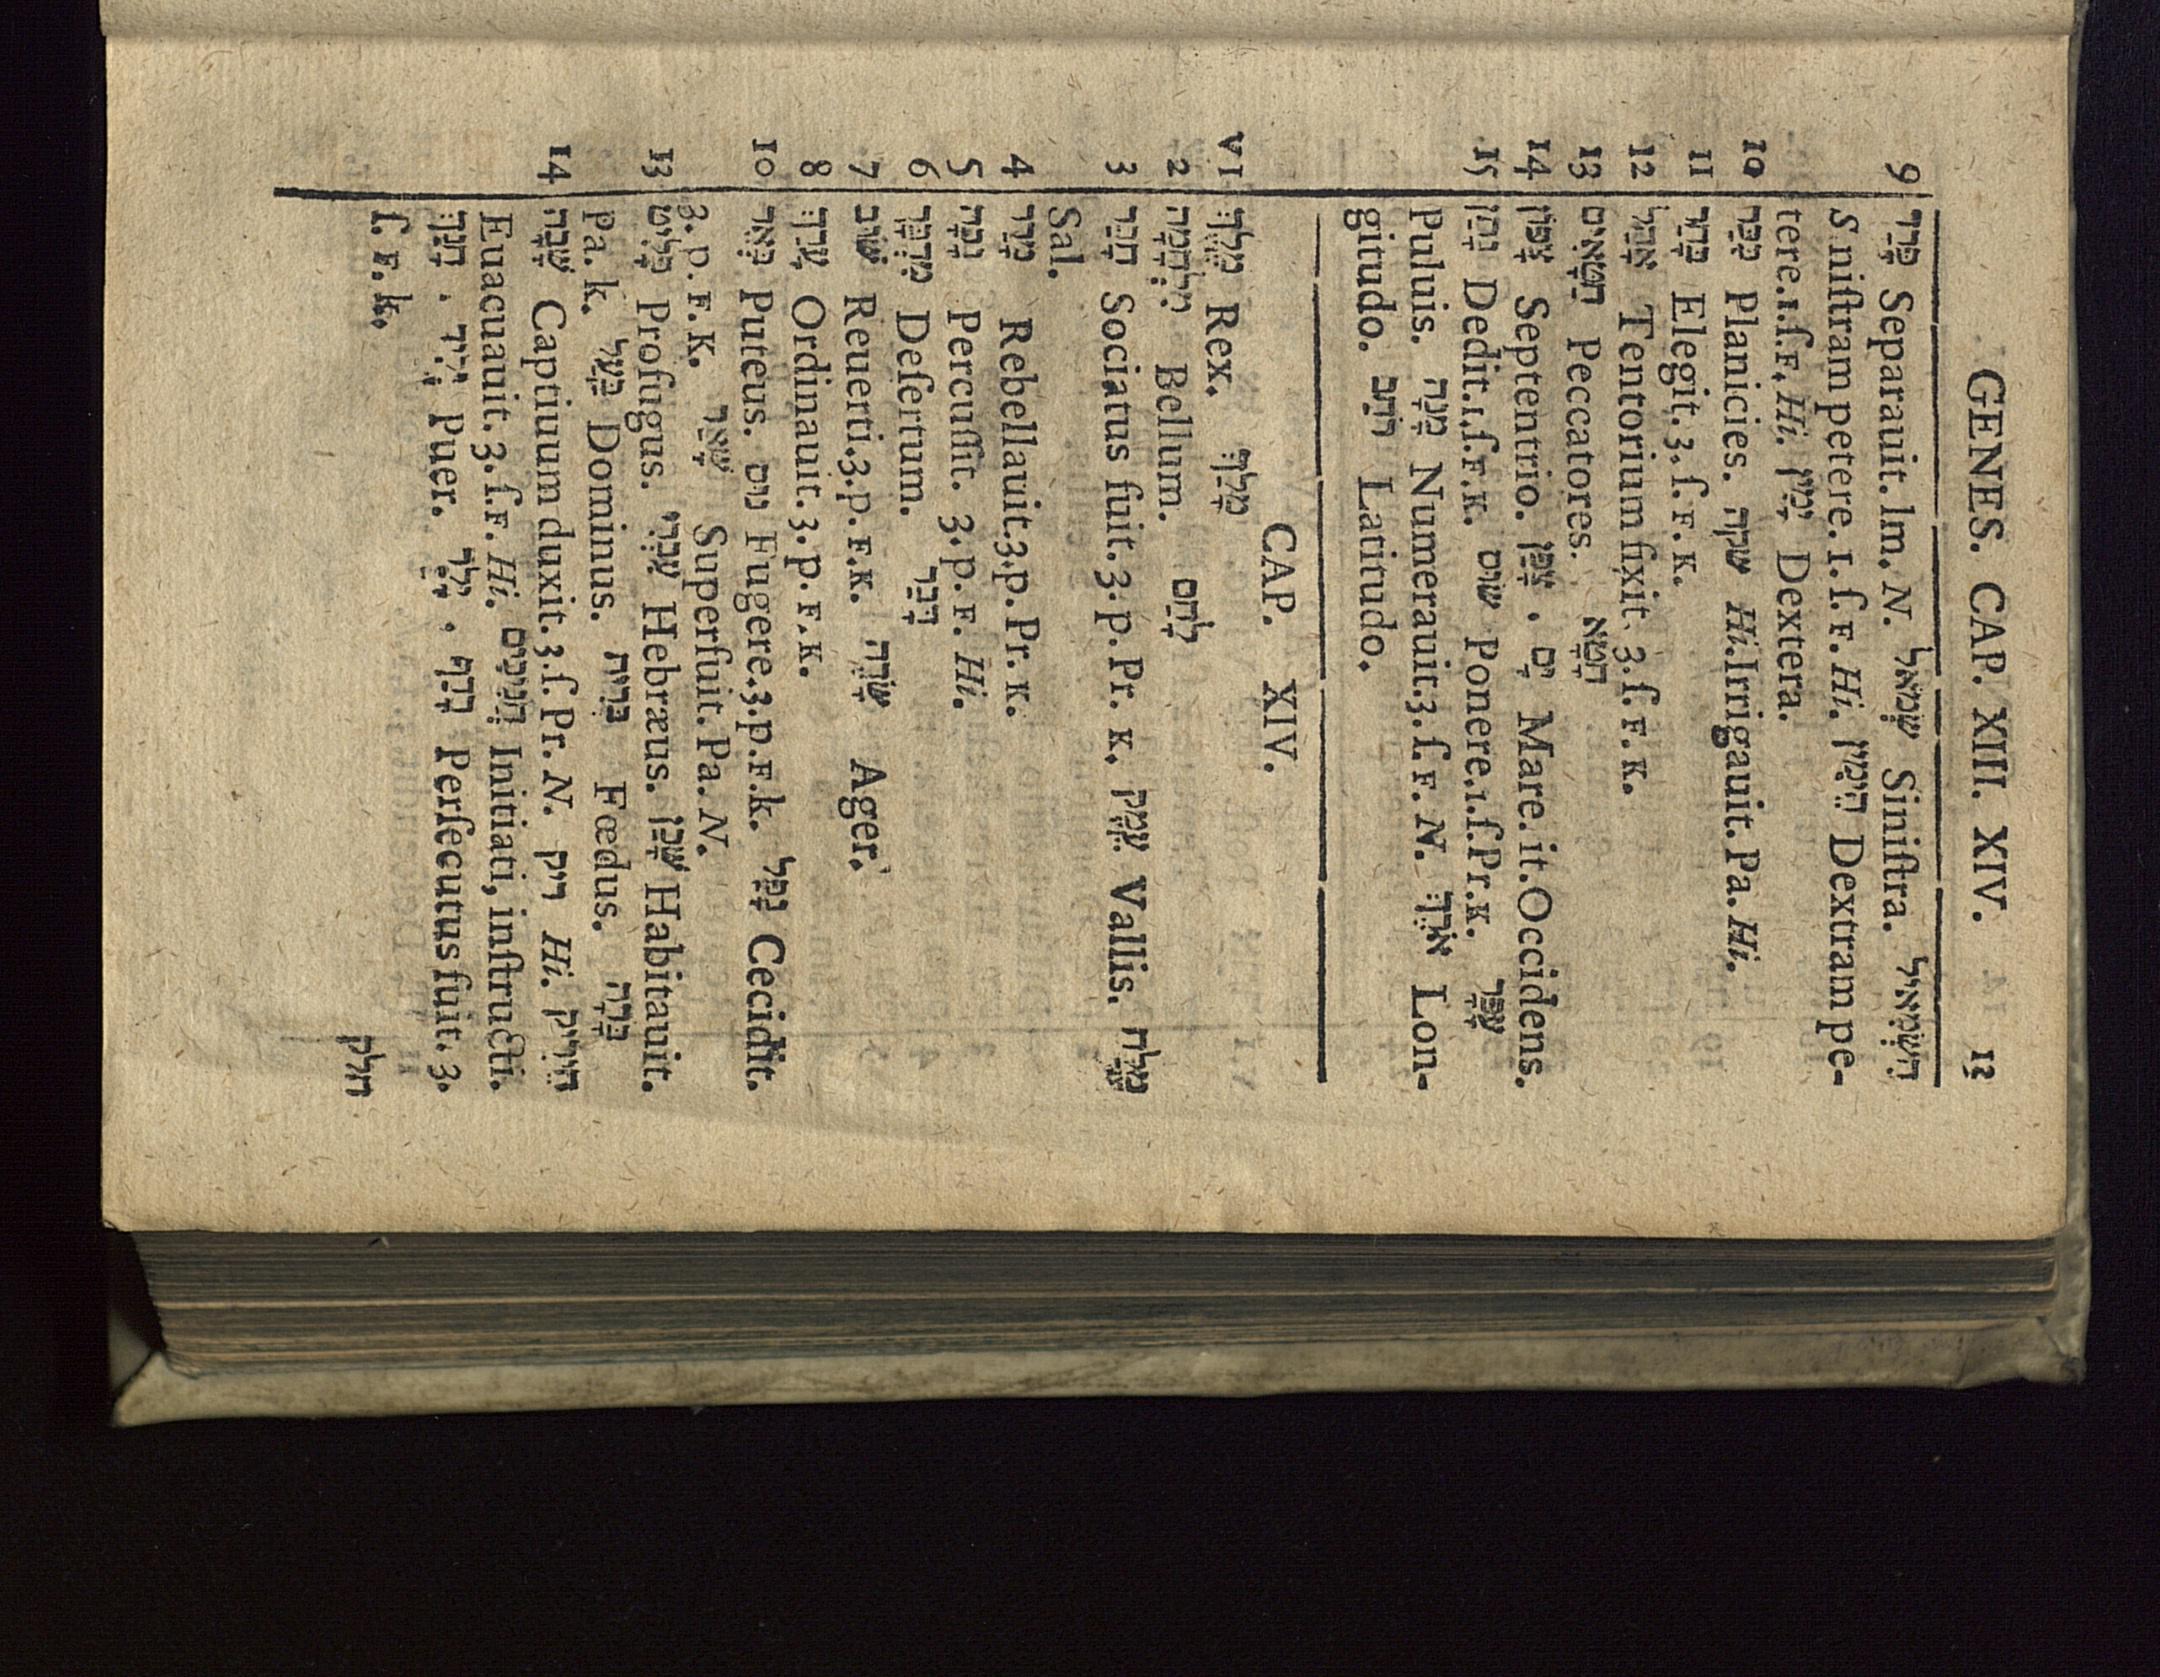 GENES. CAP. XIII. XIV. 13
9 פָּרַד Separauit. Im. N. שְׂמֹאל Siniſtra. הִשְׂמְאִיל
Siniſtram petere. 1. ſ. F. Hi. הֵימִין Dextram pe-
tere. 1. ſ. F. Hi. יָמִין Dextera.
10 כִּכָּר Planicies. שקה Hi. Irrigauit. Pa. Hi.
11 בָּחַר Elegit. 3. ſ. F. K.
12 אָהַל Tentorium fixit. 3. ſ. F. K.
13 חַטָּאִים Peccatores. חָטָא
14 צָפוֹן Septentrio. צָפַן . יָם Mare. it. Occidens.
15 נָתַן Dedit. 1. ſ. F. K. שׂוּם Ponere. 1. ſ. Pr. K. עָפָר
Puluis. מָנָה Numerauit. 3. ſ. F. N. אֹרֶךְ Lon-
gitudo. רֹחַב Latitudo.
CAP. XIV.
VI מֶלֶךְ Rex. מָלַךְ
2 מִלְחָמָה Bellum. לָחַם
3 חָבַר Sociatus fuit. 3. p. Pr. K. עֵמֶק Vallis. מֶלַח
Sal.
4 מָרַד Rebellauit. 3. p. Pr. K.
5 נָכָה Percuſſit. 3. p. F. Hi.
6 מִדְבָּר Deſertum. דָּבַר
7 שׁוּב Reuerti. 3. p. F. K. שָׂדֶה Ager.
8 עָרַךְ Ordinauit. 3. p. F. K.
10 בְּאֵר Puteus. נוּס Fugere. 3. p. F. k. נָפַל Cecidit.
3. p. F. K. שָׁאַר Superfuit. Pa. N.
13 פָּלִיט Profugus. עִבְרִי Hebræus. שָׁכַן Habitauit.
Pa. k. בַּעַל Dominus. בְּרִית Fœdus. בָּרָה
14 שָׁבָה Captiuum duxit. 3. ſ. Pr. N. ריק Hi. הֵירִיק
Euacuauit. 3. ſ. F. Hi. חֲנִיכִים Initiati, inſtructi.
חָנַךְ . יָלִיד Puer. יָלַד . רָדַף Perſecutus fuit. 3.
ſ. F. k.
חלק